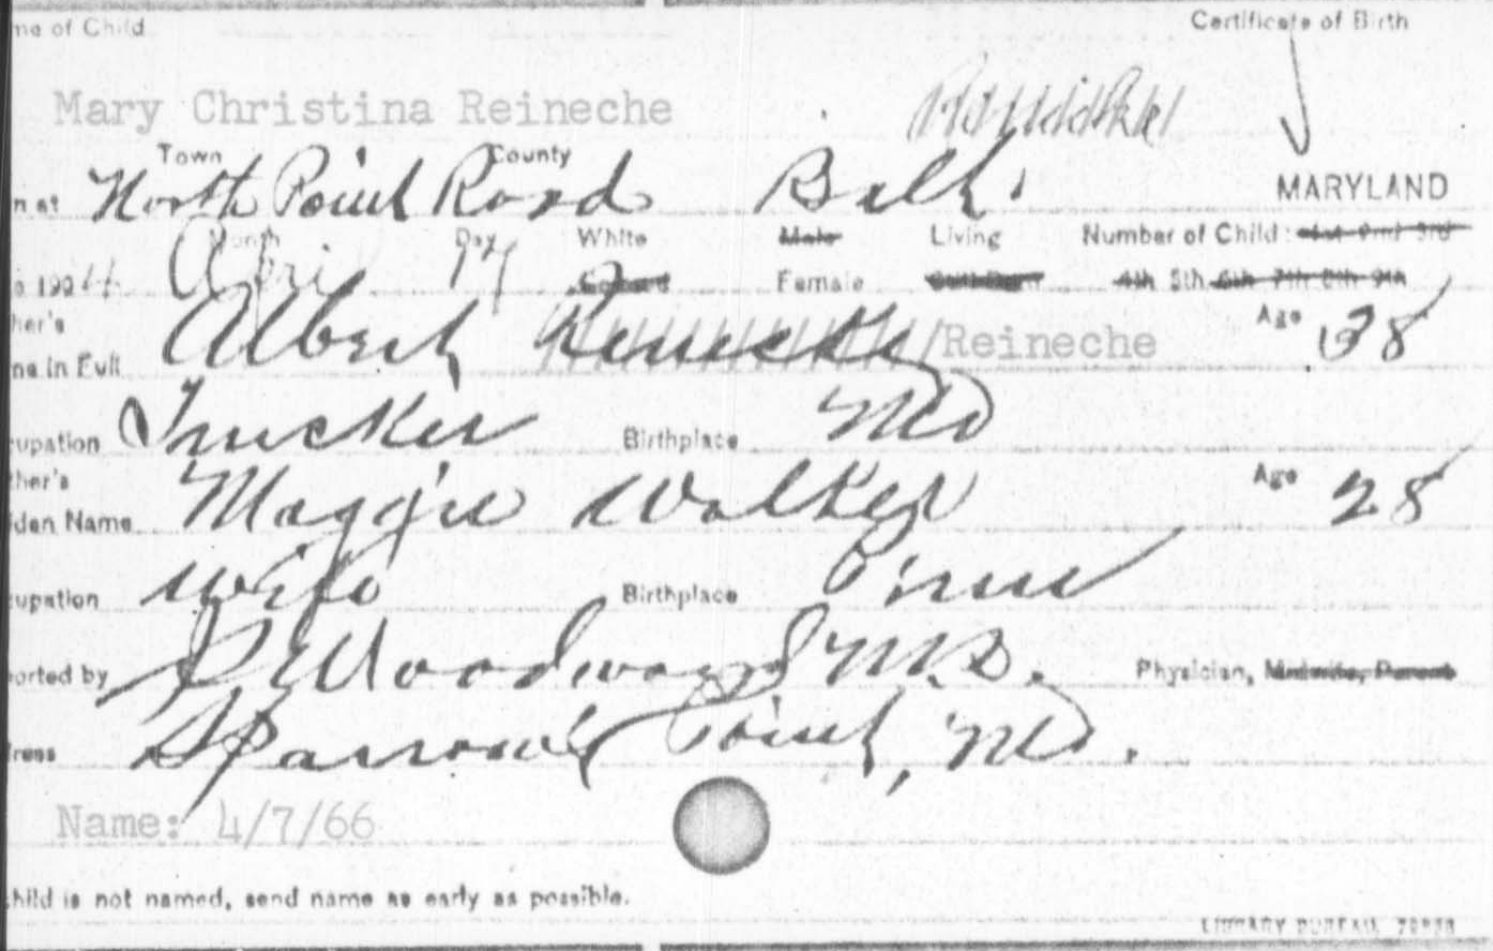 me of Child Certificate of Birth
Mary Christina Reineche
Town County
n at North Point Road Balt. MARYLAND
Month Day White Male Living Number of Child: 1st 2nd 3rd
1924 April 17 Colored Female 4th 5th 6th 7th 8th 9th
her's
me in Full Albert /Reineche Age 38
cupation Trucker Birthplace Md
ther's
iden Name Maggie Walker Age 28
cupation wife Birthplace Penn
orted by Woodward M.D. Physician, Midwife, Parent
ress Sparrow's Point, Md.
Name: 4/7/66
child is not named, send name as early as possible.
LIBRARY BUREAU